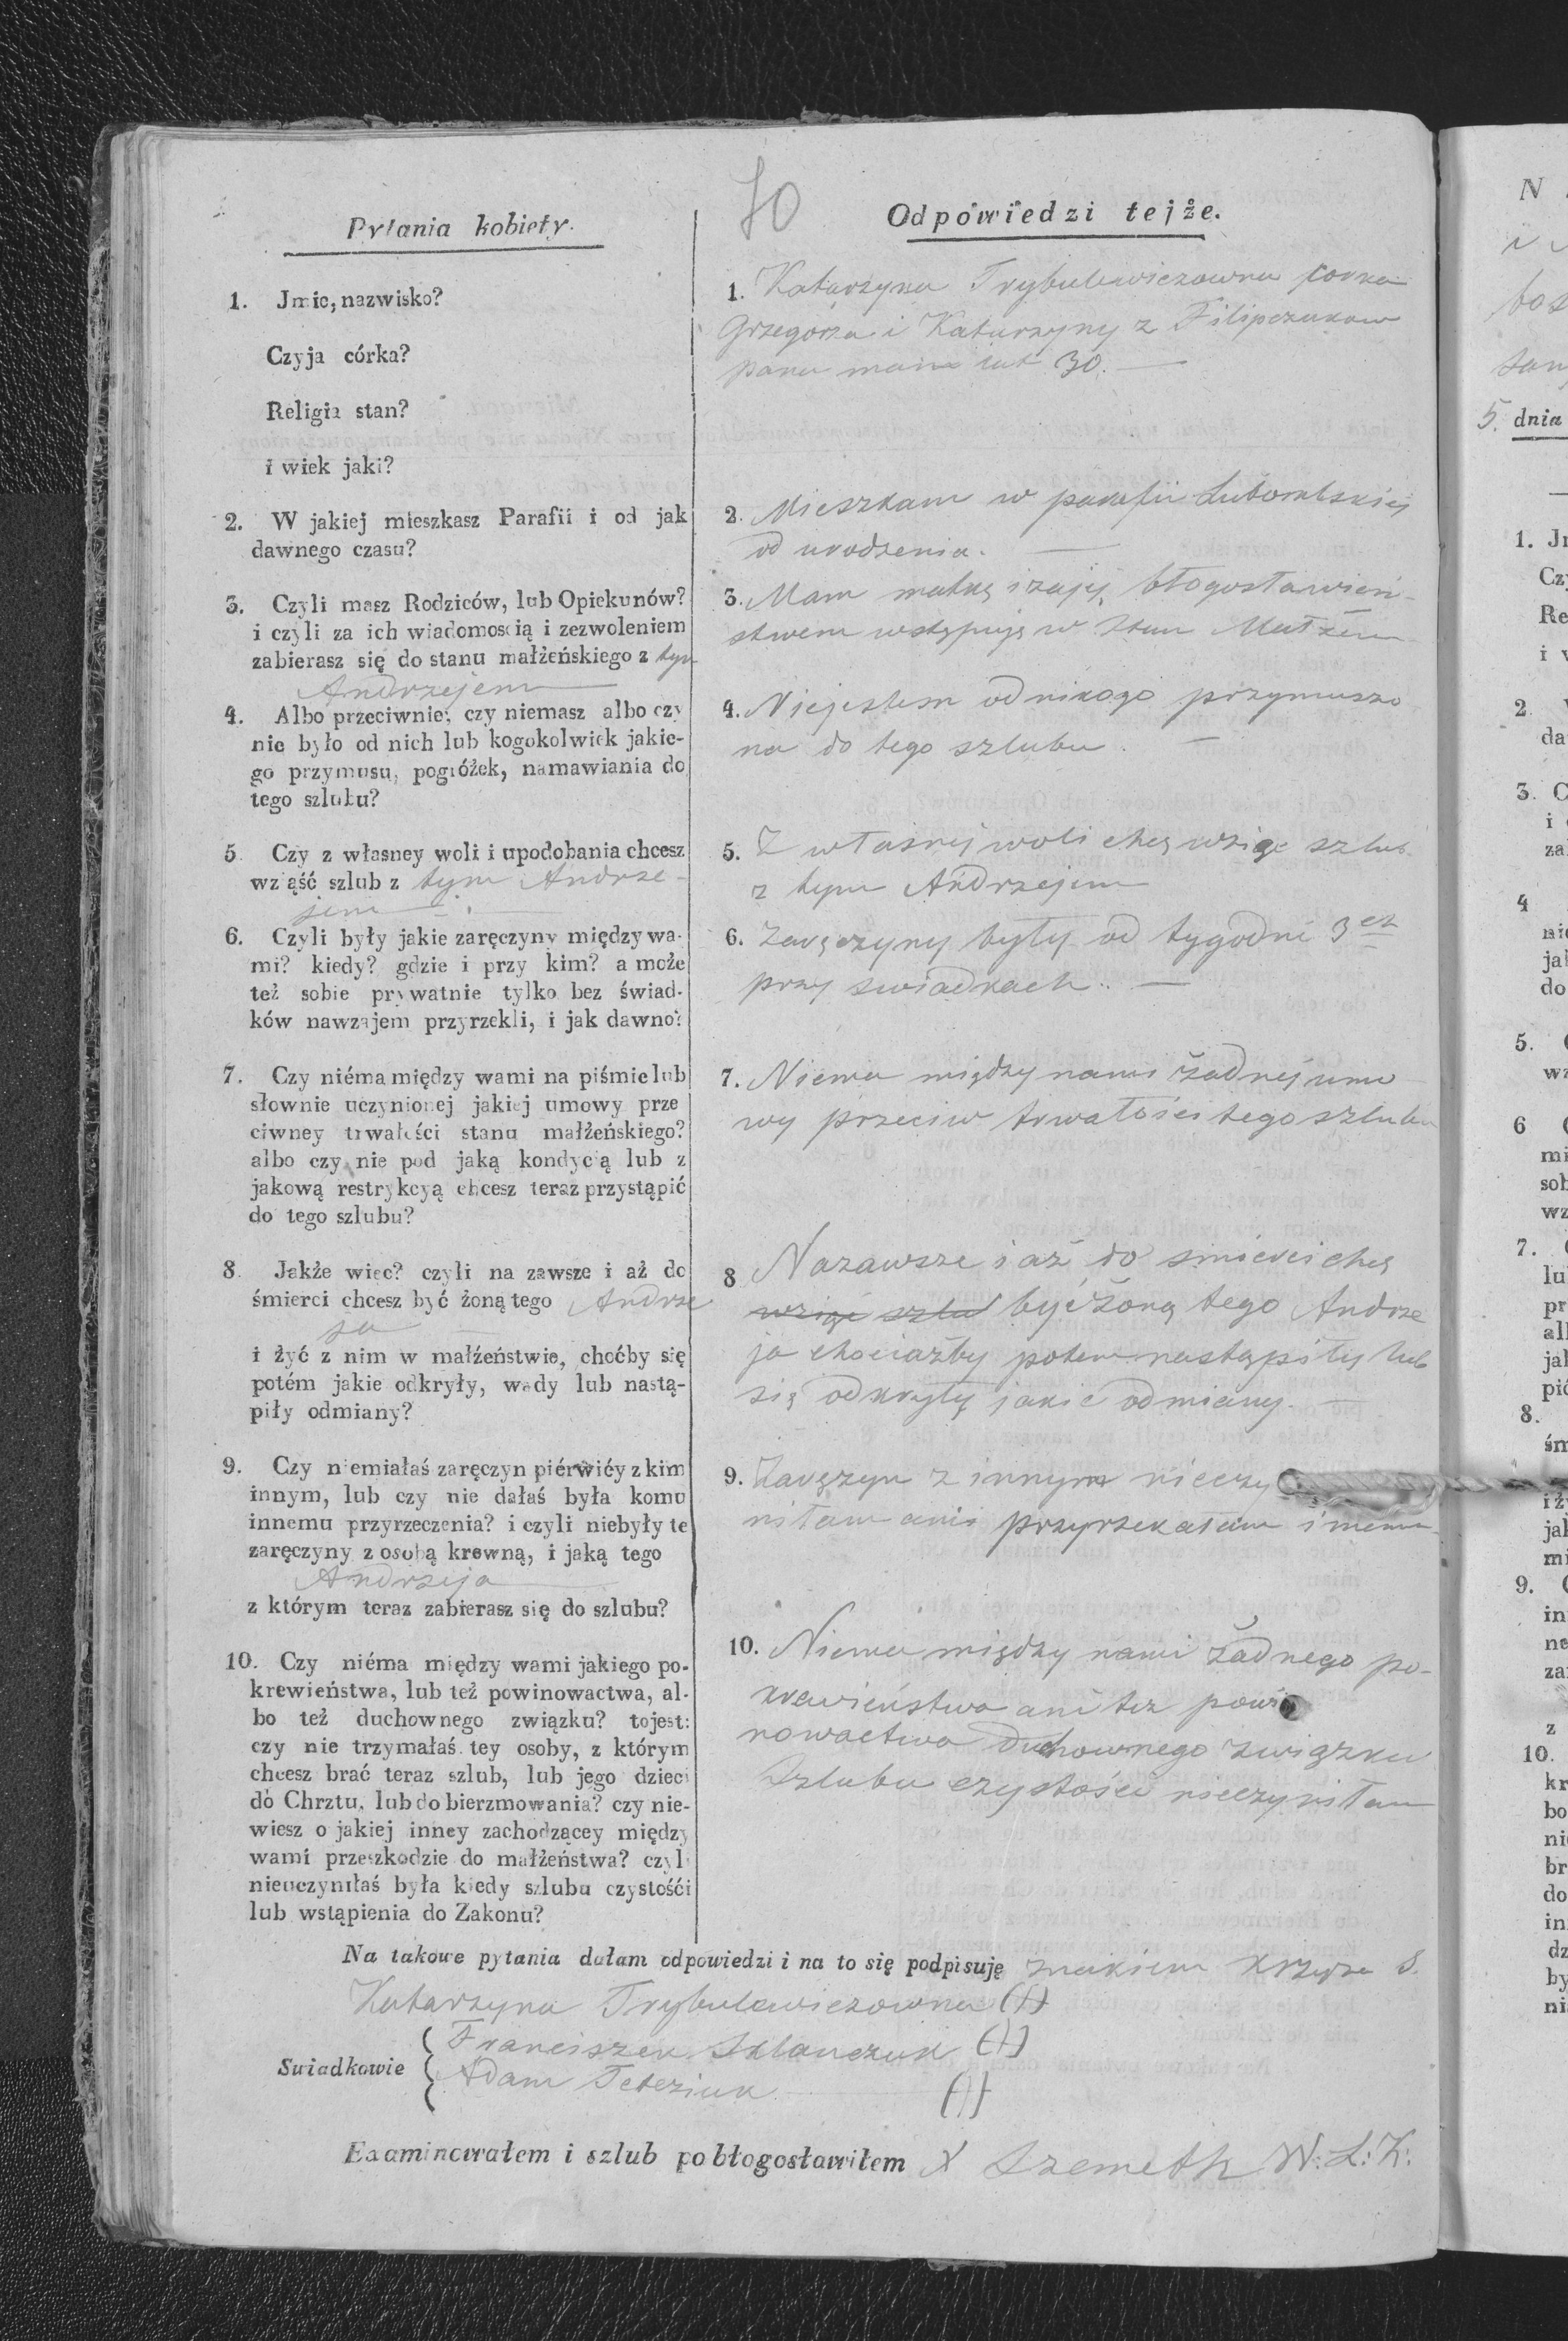 10
Pytania kobiety.
1. Jmie, nazwisko?
Czyja córka?
Religia stan?
i wiek jaki?
2. W jakiej mieszkasz Parafii i od jak
dawnego czasu?
3. Czyli masz Rodziców, lub Opiekunów?
i czyli za ich wiadomością i zezwoleniem
zabierasz się do stanu małżeńskiego z tym
Andrzejem
4. Albo przeciwnie; czy niemasz albo czy
nie było od nich lub kogokolwiek jakie-
go przymusu, pogróżek, namawiania do
tego szlubu?
5 Czy z własney woli i upodobania chcesz
wziąść szlub z tym Andrze-
jem
6. Czyli były jakie zaręczyny między wa-
mi? kiedy? gdzie i przy kim? a może
też sobie prywatnie tylko bez świad-
ków nawzajem przyrzekli, i jak dawno?
7. Czy niéma między wami na piśmie lub
słownie uczynionej jakiej umowy prze
ciwney trwałości stanu małżeńskiego?
albo czy nie pod jaką kondycią lub z
jakową restrykcyą chcesz teraz przystąpić
do tego szlubu?
8. Jakże wiec? czyli na zawsze i aż do
śmierci chcesz być żoną tego Andrze
ja
i żyć z nim w małżeństwie, choćby się
potém jakie odkryły, wady lub nastą-
piły odmiany?
9. Czy niemiałaś zaręczyn piérwiéy z kim
innym, lub czy nie dałaś była komu
innemu przyrzeczenia? i czyli niebyły te
zaręczyny z osobą krewną, i jaką tego
Andrzeja
z którym teraz zabierasz się do szlubu?
10. Czy niéma między wami jakiego po-
krewieństwa, lub też powinowactwa, al-
bo też duchownego związku? tojest:
czy nie trzymałaś tey osoby, z którym
chcesz brać teraz szlub, lub jego dzieci
do Chrztu, lub do bierzmowania? czy nie-
wiesz o jakiej inney zachodzącey między
wami przeszkodzie do małżeństwa? czyli
nieuczyniłaś była kiedy szlubu czystośći
lub wstąpienia do Zakonu?
Odpowiedzi tejże.
1. Katarzyna Trybulewiczowna corka
Grzegorza i Katarzyny z Filipczukow
pana mam lat 30.
2. Mieszkam w parafii
od urodzenia.
3. Mam matkę i zajęj błogosławien-
stwem wstępuję w stan Małżen
4. Niejestem od nikogo przymuszo
na do tego szlubu.
5. Z własnej woli chcę wziąć szlub
z tym Andrzejem
6. Zaręczyny były od tygodni 3ch
przy swiadkach.
7. Niema między nami żadnej umo
wy przeciw trwałości tego szlubu
8 Nazawsze i aż do smierci chcę
wziąć szlub być żoną tego Andrze
ja chociażby potem nastąpiły lub
się odkryły jakie odmiany.
9. Zaręczyn z innym nieczy
niłam ani przyrzekałam innemu
10. Niema między nami żadnego po-
krewieństwa ani też powi
nowactwa duchownego związku
Szlubu czystości nieczyniłam
Na takowe pytania dałam odpowiedzi i na to się podpisuję znakiem krzyża S.
Katarzyna Trybulewiczowna (+)
Swiadkowie
Franciszek Sklanczuk (+)
Adam Teteziuk (+)
Examinowałem i szlub pobłogosławiłem X Szemeth W: L: K:
N
i
bos
5. dnia
1. J
Cz
Re
i
2.
da
3. C
i
za
4
nie
jak
do
5.
wz
6
mi
sob
wz
7.
lu
pr
alb
jak
pić
8.
śm
i ż
jak
mi
9.
in
ne
za
z
10.
kr
bo
ni
br
do
in
dz
by
ni